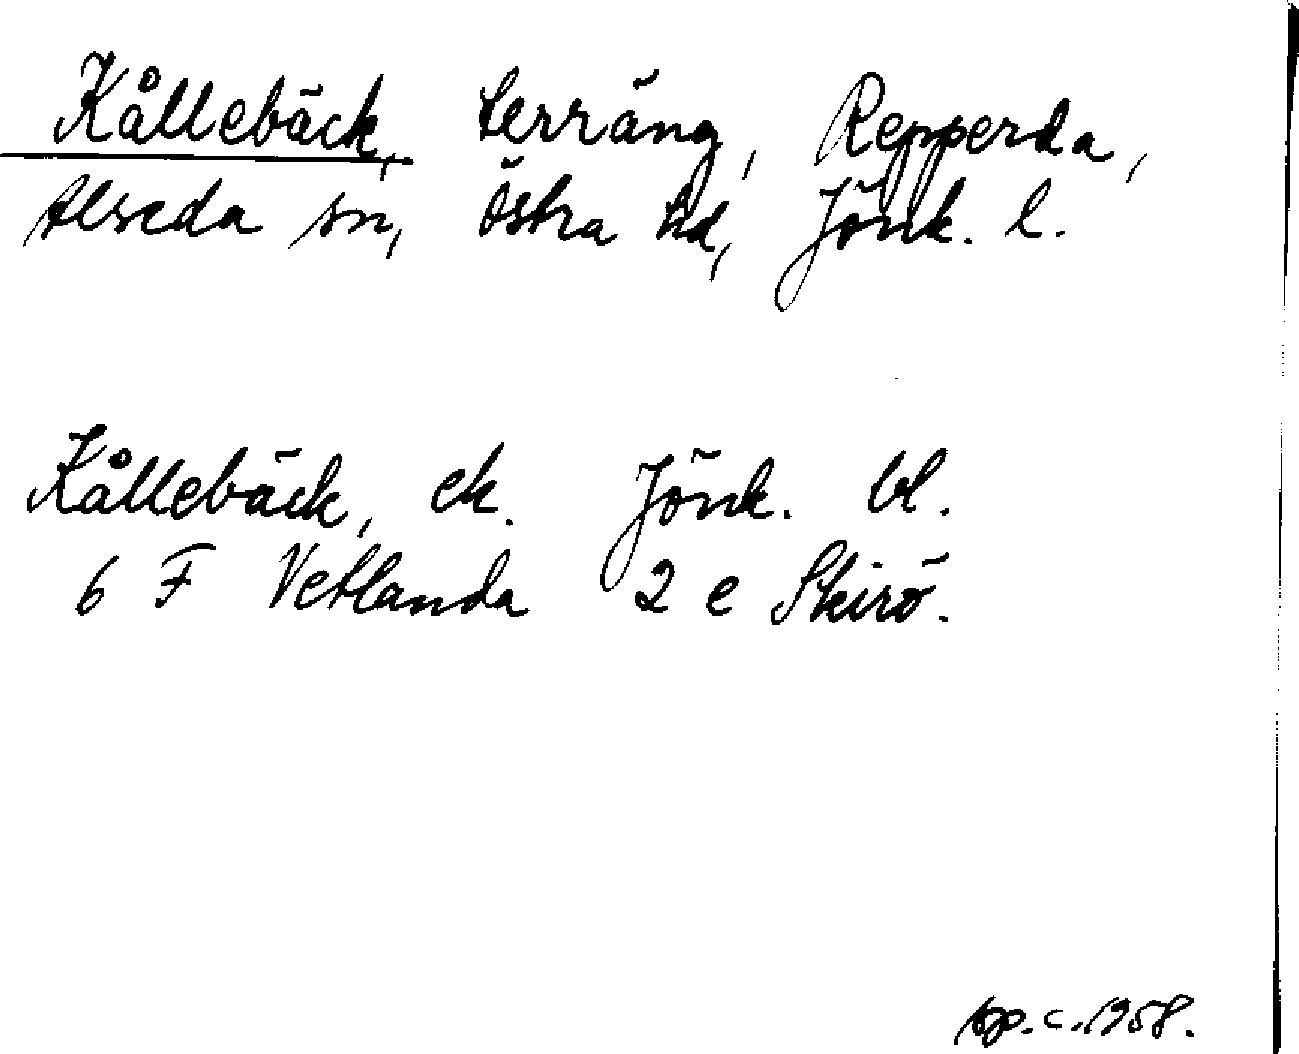 Kållebäck, terräng, Repperda,
Alseda sn, Östra hd, Jönk. l.
Kållebäck, ek. Jönk. bl.
6 F Vetlanda 2 e Skirö.
c. 1958.